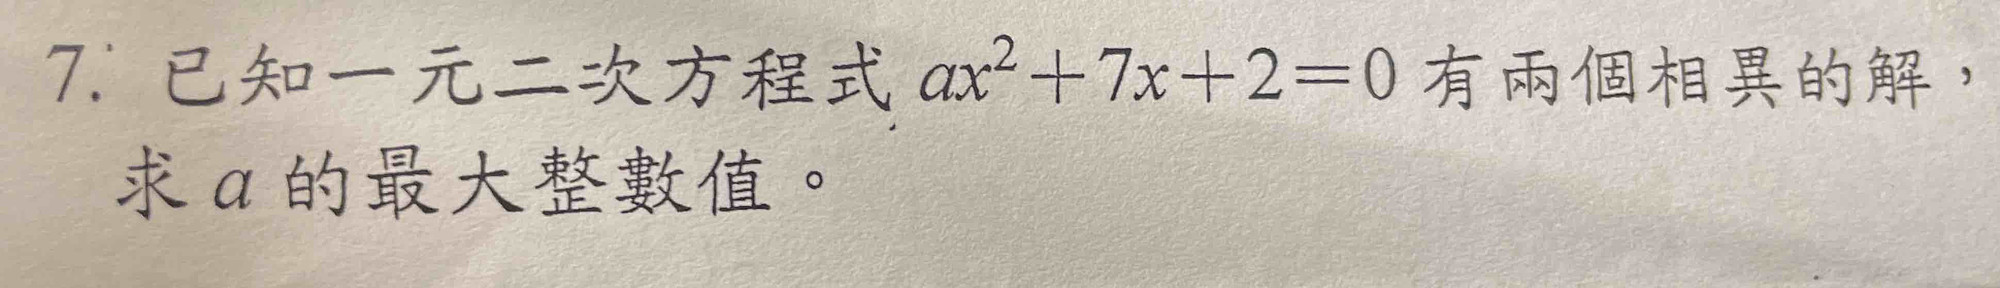 7. 已知一元二次方程式 ax²+7x+2=0 有兩個相異的解，
求 a 的最大整數值。